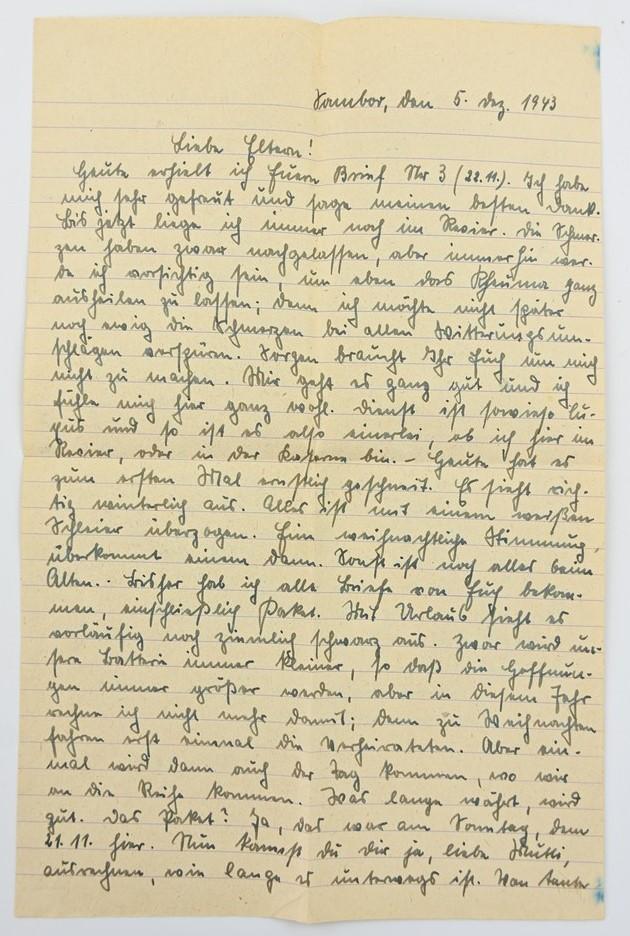 Sambor, den 5. Dez. 1943
Liebe Eltern!
Heute erhielt ich Euern Brief Nr 3 (22.11.). Ich habe
mich sehr gefreut und sage meinen besten Dank.
Bis jetzt liege ich immer noch im Revier. Die Schmer-
zen haben zwar nachgelassen, aber immerhin wer-
de ich vorsichtig sein, um eben das Rheuma ganz
ausheilen zu lassen; denn ich möchte nicht später
noch ewig die Schmerzen bei allen Witterungsum-
schlägen verspüren. Sorgen braucht Ihr Euch um mich
nicht zu machen. Mir geht es ganz gut und ich
fühle mich hier ganz wohl. Dienst ist sowieso Lu-
xus und so ist es also einerlei, ob ich hier im
Revier, oder in der Kaserne bin. – Heute hat es
zum ersten Mal ernstlich geschneit. Es sieht rich-
tig winterlich aus. Alles ist mit einem weißen
Schleier überzogen. Eine weihnachtliche Stimmung
überkommt einem dann. Sonst ist noch alles beim
Alten. – Bisher hab ich alle Briefe von Euch bekom-
men, einschließlich Paket. Mit Urlaub sieht es
vorläufig noch ziemlich schwarz aus. Zwar wird un-
sere Batterie immer kleiner, so daß die Hoffnun-
gen immer größer werden, aber in diesem Jahr
rechne ich nicht mehr damit; denn zu Weihnachten
fahren erst einmal die Verheirateten. Aber ein-
mal wird dann auch der Tag kommen, wo wir
an die Reihe kommen. Was lange währt, wird
gut. Das Paket? Ja, das war am Sonntag, dem
21.11. hier. Nun kannst Du Dir ja, liebe Mutti,
ausrechnen, wie lange es unterwegs ist. Von Tante